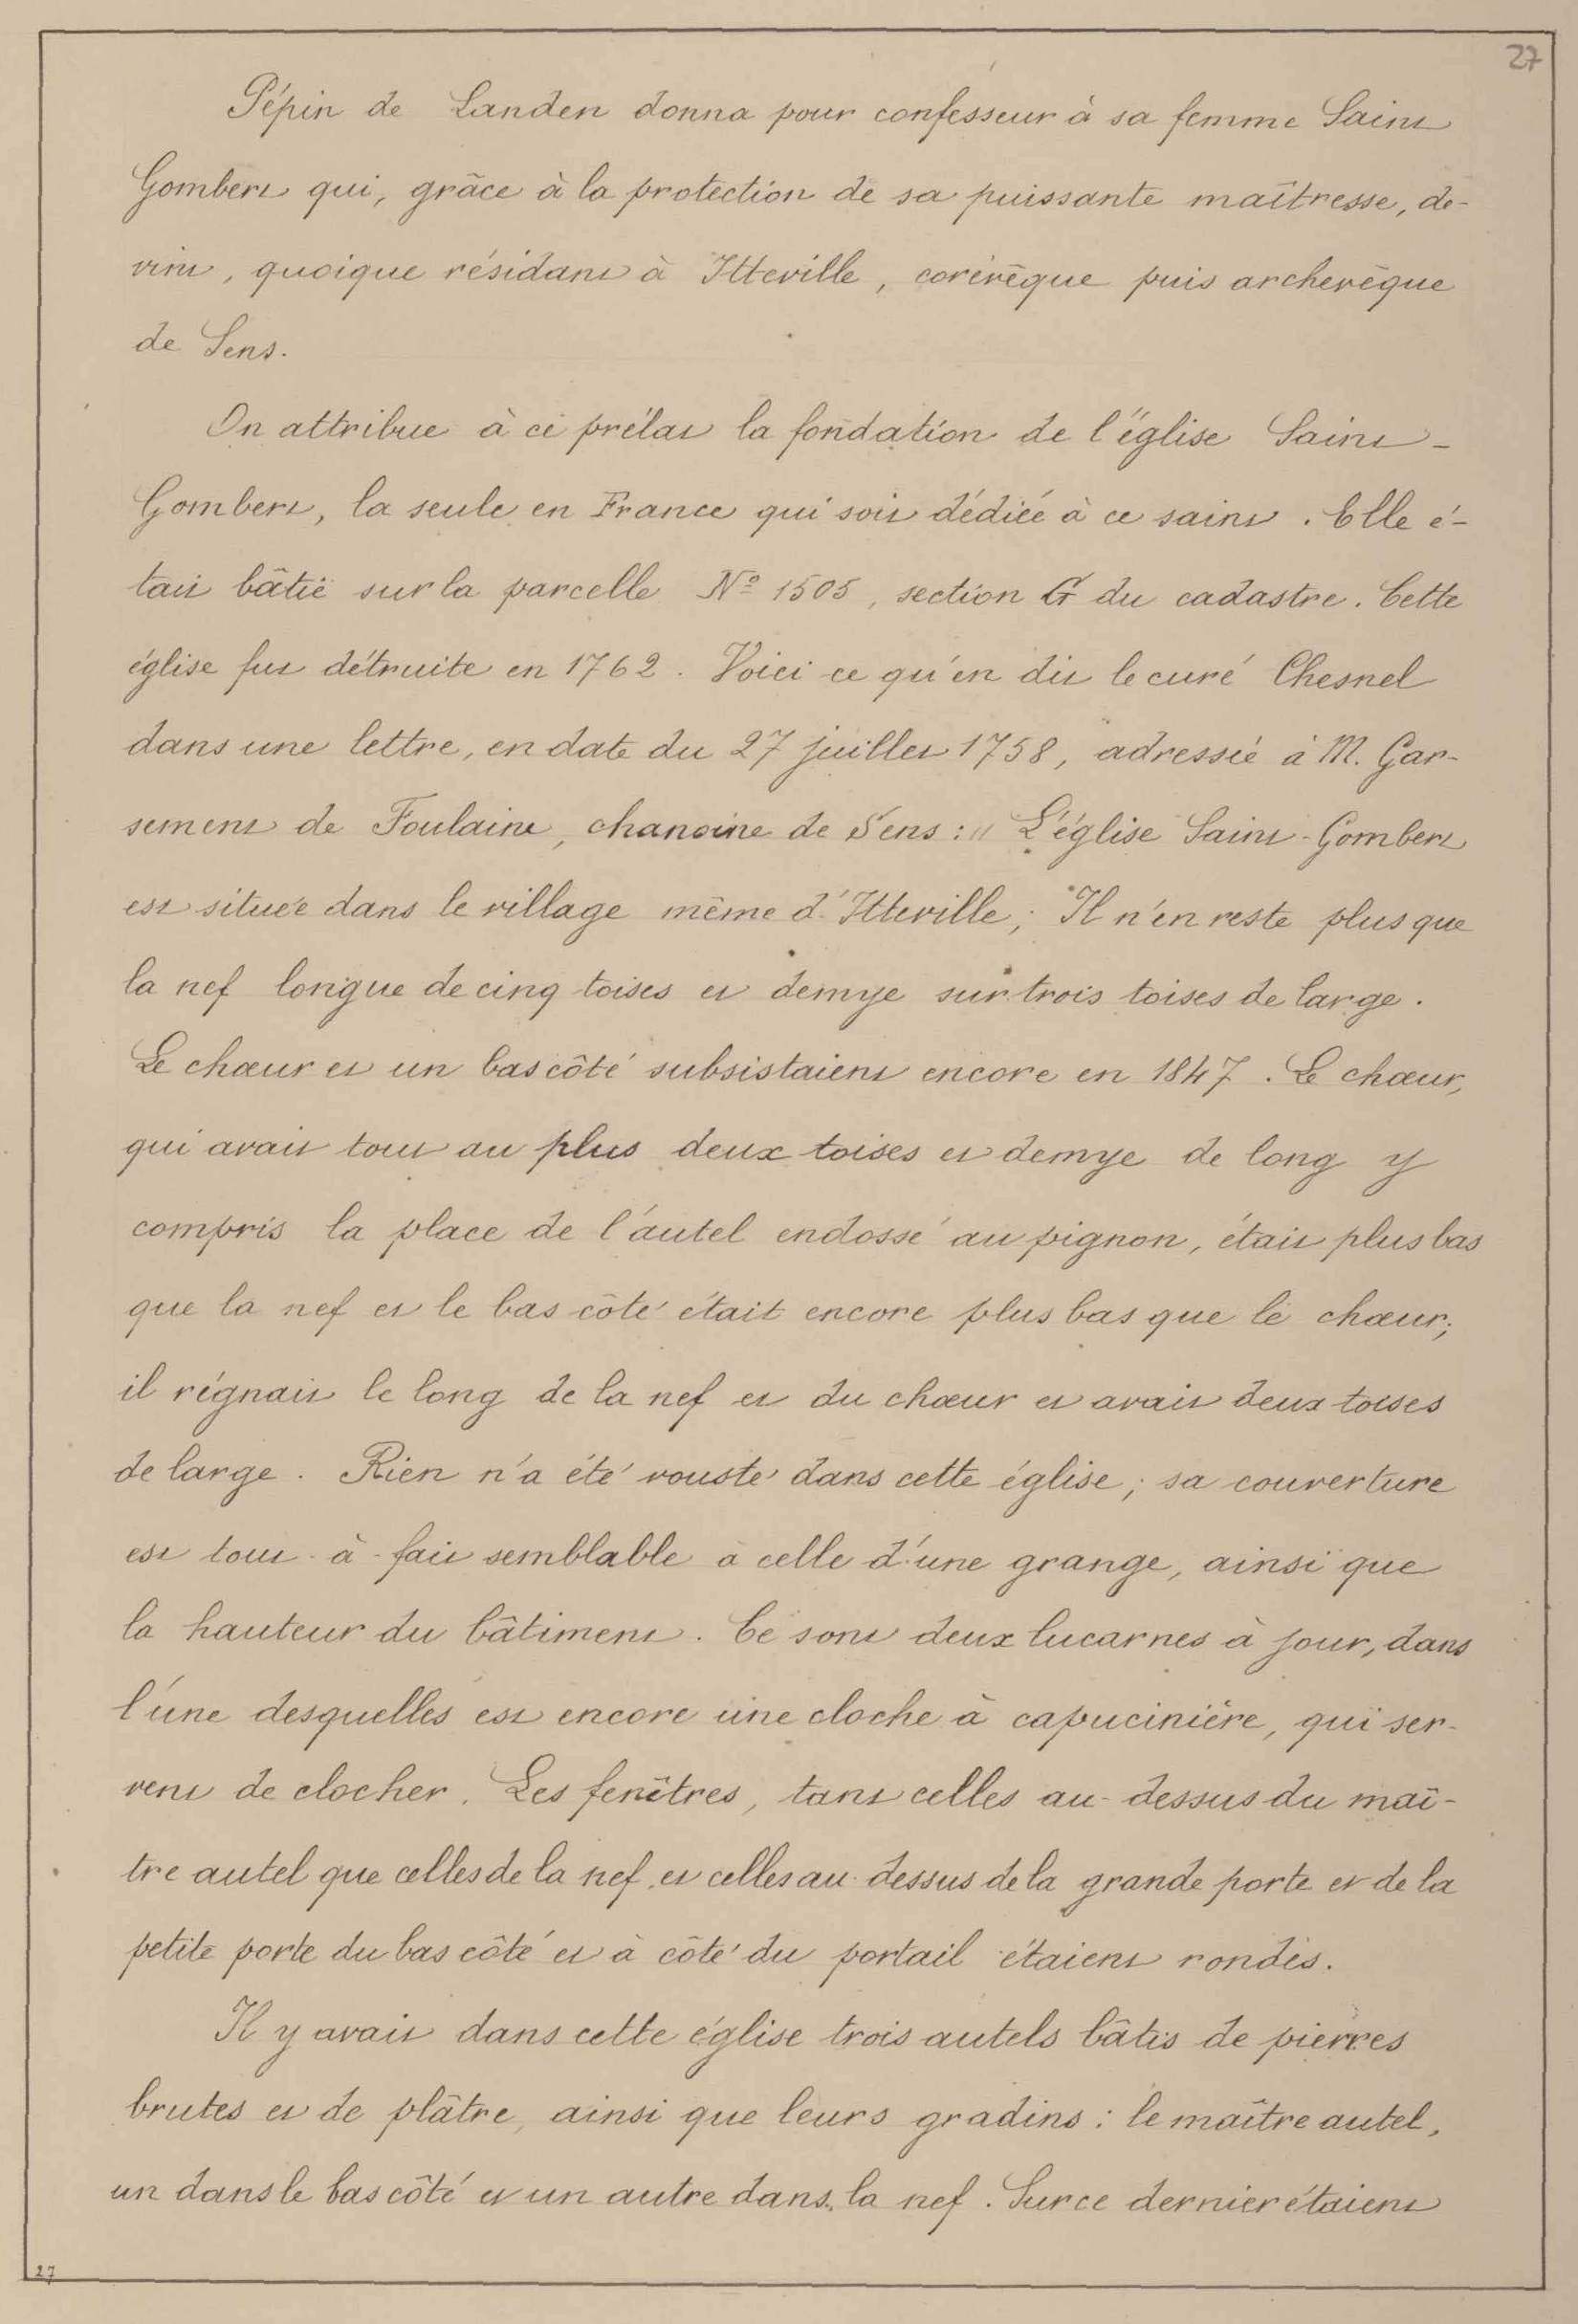 27
Pépin de Landen donna pour confesseur à sa femme Saint
Gombert qui, grâce à la protection de sa puissante maîtresse, de-
vint, quoique résidant à Itteville, corévêque puis archevêque
de Sens.
On attribue à ce prélat la fondation de l'église Saint-
Gombert, la seule en France qui soit dédiée à ce saint. Elle é-
tait bâtie sur la parcelle Nº 1505, section G du cadastre. Cette
église fut détruite en 1762. Voici ce qu'en dit le curé Chesnel
dans une lettre, en date du 27 juillet 1758, adressée à M. Gar-
sement de Foulaine, chanoine de Sens : " L'église Saint-Gombert
est située dans le village même d'Itteville; Il n'en reste plus que
la nef longue de cinq toises et demye sur trois toises de large.
Le chœur et un bas côté subsistaient encore en 1847. Le chœur,
qui avait tout au plus deux toises et demye de long y
compris la place de l'autel endossé au pignon, était plus bas
que la nef et le bas côté était encore plus bas que le chœur;
il régnait le long de la nef et du chœur et avait deux toises
de large. Rien n'a été vousté dans cette église; sa couverture
est tout-à-fait semblable à celle d'une grange, ainsi que
la hauteur du bâtiment. Ce sont deux lucarnes à jour, dans
l'une desquelles est encore une cloche à capucinière, qui ser-
vent de clocher. Les fenêtres, tant celles au-dessus du maî-
tre autel que celles de la nef, et celles au-dessus de la grande porte et de la
petite porte du bas côté et à côté du portail étaient rondes.
Il y avait dans cette église trois autels bâtis de pierres
brutes et de plâtre, ainsi que leurs gradins : le maître autel,
un dans le bas côté et un autre dans la nef. Sur ce dernier étaient
27